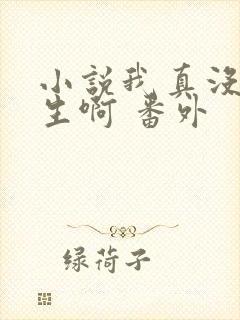 小説我真没
生啊 番外
绿荷子